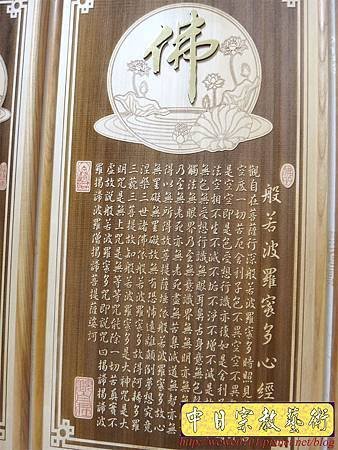 佛
般若波羅蜜多心經
觀自在菩薩行深般若波羅蜜多時照見五蘊皆
空度一切苦厄舍利子色不異空空不異色色即
是空空即是色受想行識亦復如是舍利子是諸
法空相不生不滅不垢不淨不增不減是故空中
無色無受想行識無眼耳鼻舌身意無色聲香味
觸法無眼界乃至無意識界無無明亦無無明盡
乃至無老死亦無老死盡無苦集滅道無智亦無
得以無所得故菩提薩埵依般若波羅蜜多故心
無罣礙無罣礙故無有恐怖遠離顛倒夢想究竟
涅槃三世諸佛依般若波羅蜜多故得阿耨多羅
三藐三菩提故知般若波羅蜜多是大神咒是大
明咒是無上咒是無等等咒能除一切苦真實不
虛故說般若波羅蜜多咒即說咒曰揭諦揭諦波
羅揭諦波羅僧揭諦菩提薩婆訶
中日宗教藝術